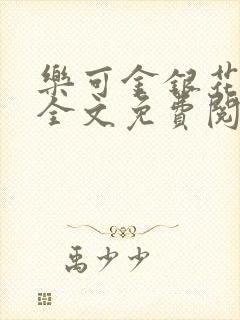 樂可金銀花
全文免費閱
禹少少